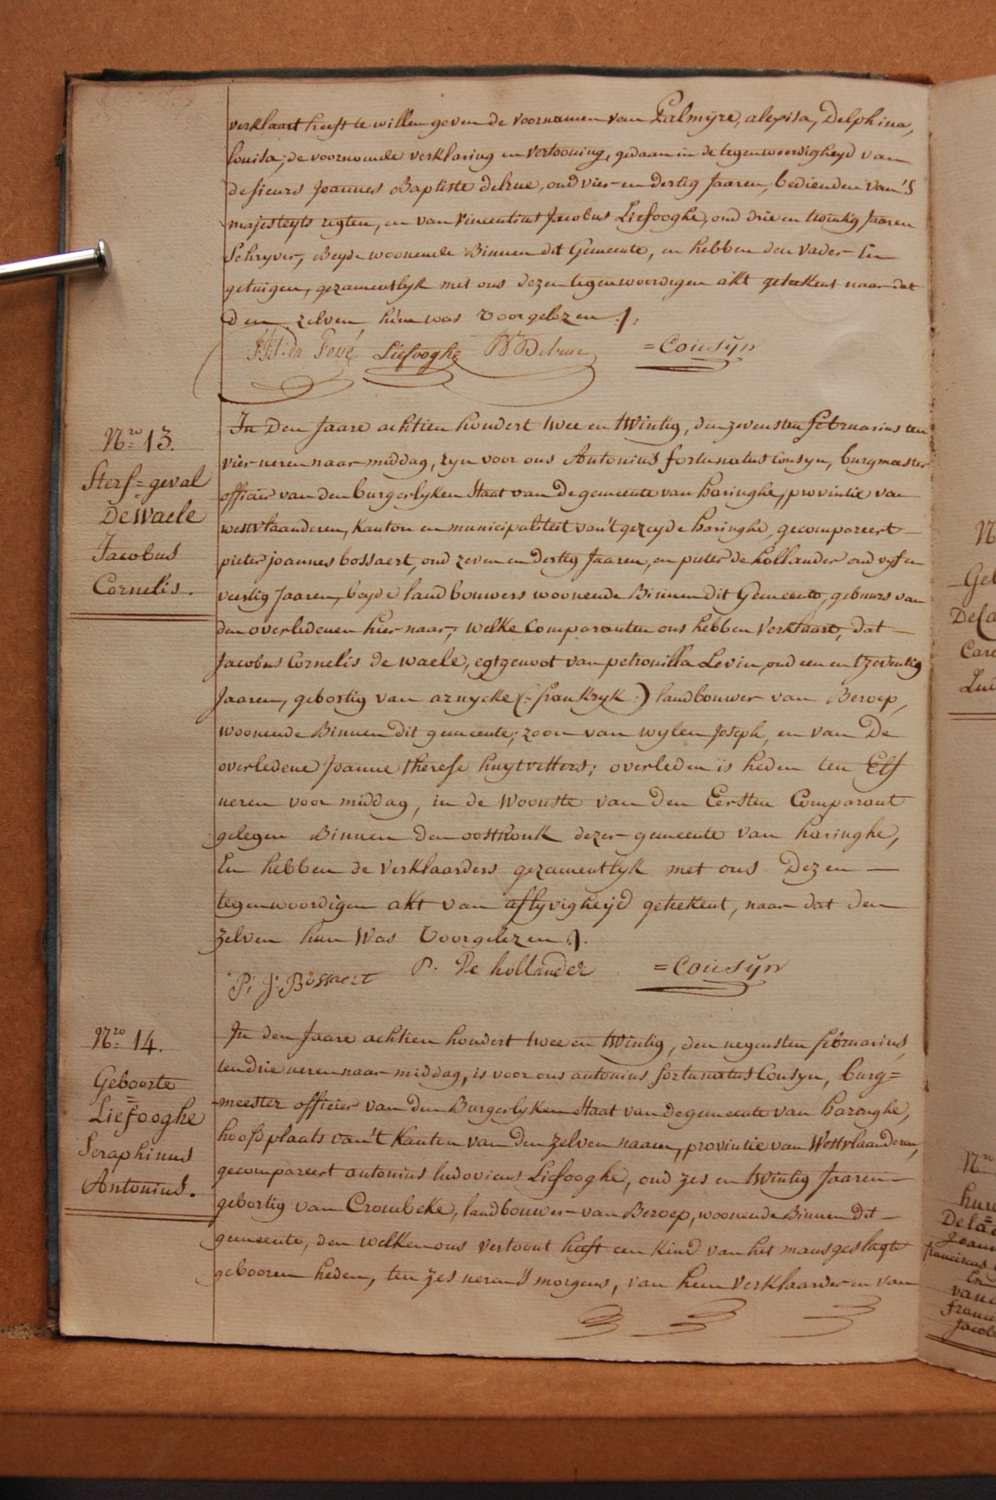 verklaart heeft te willen geven de voornamen van Palmÿre, alexisa, Delphina,
Louisa; de voornoemde verklaring en vertooning, gedaan in de tegenwoordigheyd van
de sieurs Joannes Baptiste delrue, oud vier-en dertig Jaaren, bedienden van 'S
majesteyts regten, en van Vincentius Jacobus Liefooghe, oud drie en twintig Jaaren
Schryver, Beyde woonende Binnen dit Gemeente, en hebben den vader En
getuigen, gezamentlyk met ons dezen tegenwoordigen akt geteekent naar dat
Den zelven hun was Voorgelezen ./.
Liefooghe Delrue =Cousÿn
Nro 13.
Sterf=geval
De Waele
Jacobus
Cornelis.
In Den Jaare achtien hondert twee en twintig, den zevensten februarius ten
vier ueren naar middag, zyn voor ons Antonius fortunatus Cousyn, burgmeester
officier van den burgerlyken Staat van de gemeente van haringhe, provintie van
westvlaanderen, kanton en municipaliteit van't gezeyde haringhe, gecompareert
pieter joannes bossaert, oud zeven en dertig Jaaren, en pieter de hollander oud vyf en
veertig Jaaren, beyde landbouwers woonende Binnen dit Gemeente, gebuers van
den overledenen hier-naar, welke Comparanten ons hebben Verklaart, dat
Jacobus Cornelis de waele, egtgenoot van petronilla Levin, oud een en tzeventig
Jaaren, gebortig van arnycke (: frankryk :) landbouwer van Beroep,
woonende Binnen dit gemeente, zoon van wylen Joseph, en van De
overledene Joanne therese huytvetters; overleden is heden ten Elf
ueren voor middag, in de Woonste van den Eersten Comparant
gelegen Binnen den oosthouk dezer gemeente van haringhe,
En hebben de verklaarders gezamentlyk met ons Dezen
tegenwoordigen akt van aflyvigheÿd geteekent, naar dat den
zelven hun Was Voorgelezen ./.
P: J: Bossaert P. De hollander =Cousÿn
Nro 14.
Geboorte
=
Liefooghe
Seraphinus
Antonius.
In den Jaare achtien hondert twee en twintig, den negensten februarius,
ten drie ueren naar middag, is voor ons antonius fortunatus Cousyn, burg=
meester officier van den Burgerlyken Staat van de gemeente van haringhe,
hoofsplaats van't kanton van den zelven naam, provintie van Westvlaanderen,
gecompareert antonius ludovicus Liefooghe, oud zes en twintig Jaaren
gebortig van Crombeke, landbouwer van Beroep, woonende Binnen dit
gemeente, den welken ons vertoont heeft een kind van het mansgeslagt
gebooren heden, ten zes ueren 'S morgens, van hem verklaarder en van